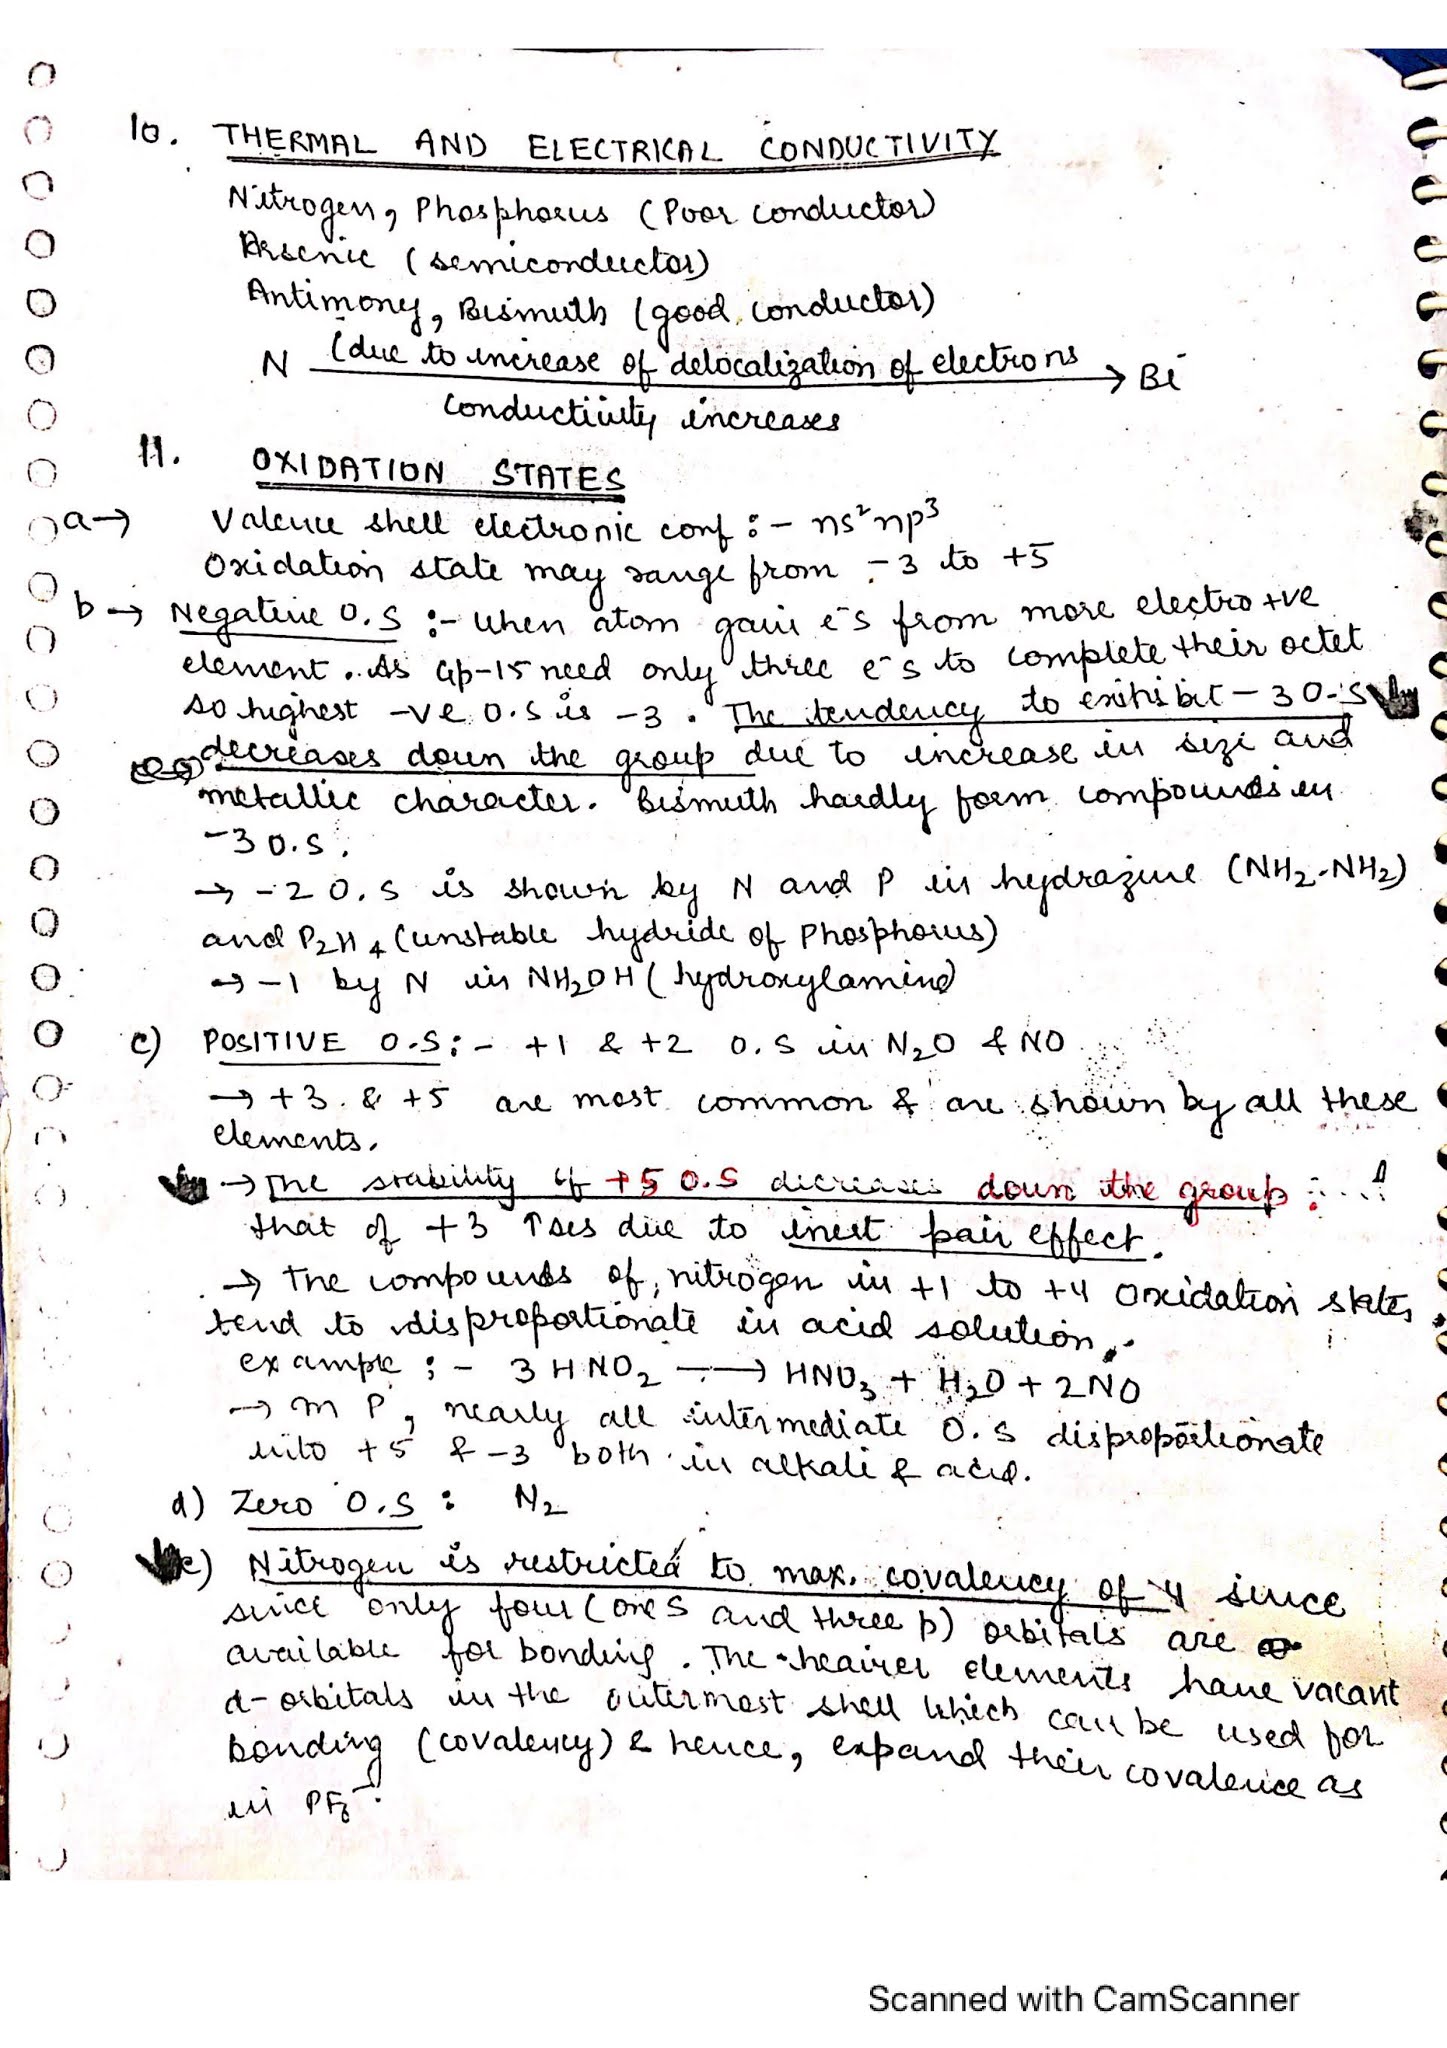 10. THERMAL AND ELECTRICAL CONDUCTIVITY
Nitrogen, Phosphorus (Poor conductor)
Arsenic (semiconductor)
Antimony, Bismuth (good conductor)
N (due to increase of delocalization of electrons → Bi
Conductivity increases
11. OXIDATION STATES
a → Valence shell electronic conf :- ns²np³
Oxidation state may range from -3 to +5
b → Negative O.S :- when atom gain e⁻s from more electro +ve
element. As Gp-15 need only three e⁻s to complete their octet
so highest -ve O.S is -3. The tendency to exihibit -3 O.S
decreases down the group due to increase in size and
metallic character. Bismuth hardly form compounds in
-3 O.S.
→ -2 O.S is shown by N and P in hydrazine (NH₂-NH₂)
and P₂H₄ (unstable hydride of Phosphorus)
→ -1 by N in NH₂OH (hydroxylamine)
c) POSITIVE O.S :- +1 & +2 O.S in N₂O & NO
→ +3 & +5 are most common & are shown by all these
elements.
→ The stability of +5 O.S decreases down the group
that of +3 ↑ses due to inert pair effect.
→ The compounds of nitrogen in +1 to +4 oxidation states
tend to disproportionate in acid solution.
example :- 3HNO₂ → HNO₃ + H₂O + 2NO
→ In P, nearly all intermediate O.S disproportionate
into +5 & -3 both in alkali & acid.
d) Zero O.S : N₂
e) Nitrogen is restricted to max. covalency of 4 since
since only four (one s and three p) orbitals are
available for bonding. The heavier elements have vacant
d-orbitals in the outermost shell which can be used for
bonding (covalency) & hence, expand their covalence as
in PF₆⁻.
Scanned with CamScanner